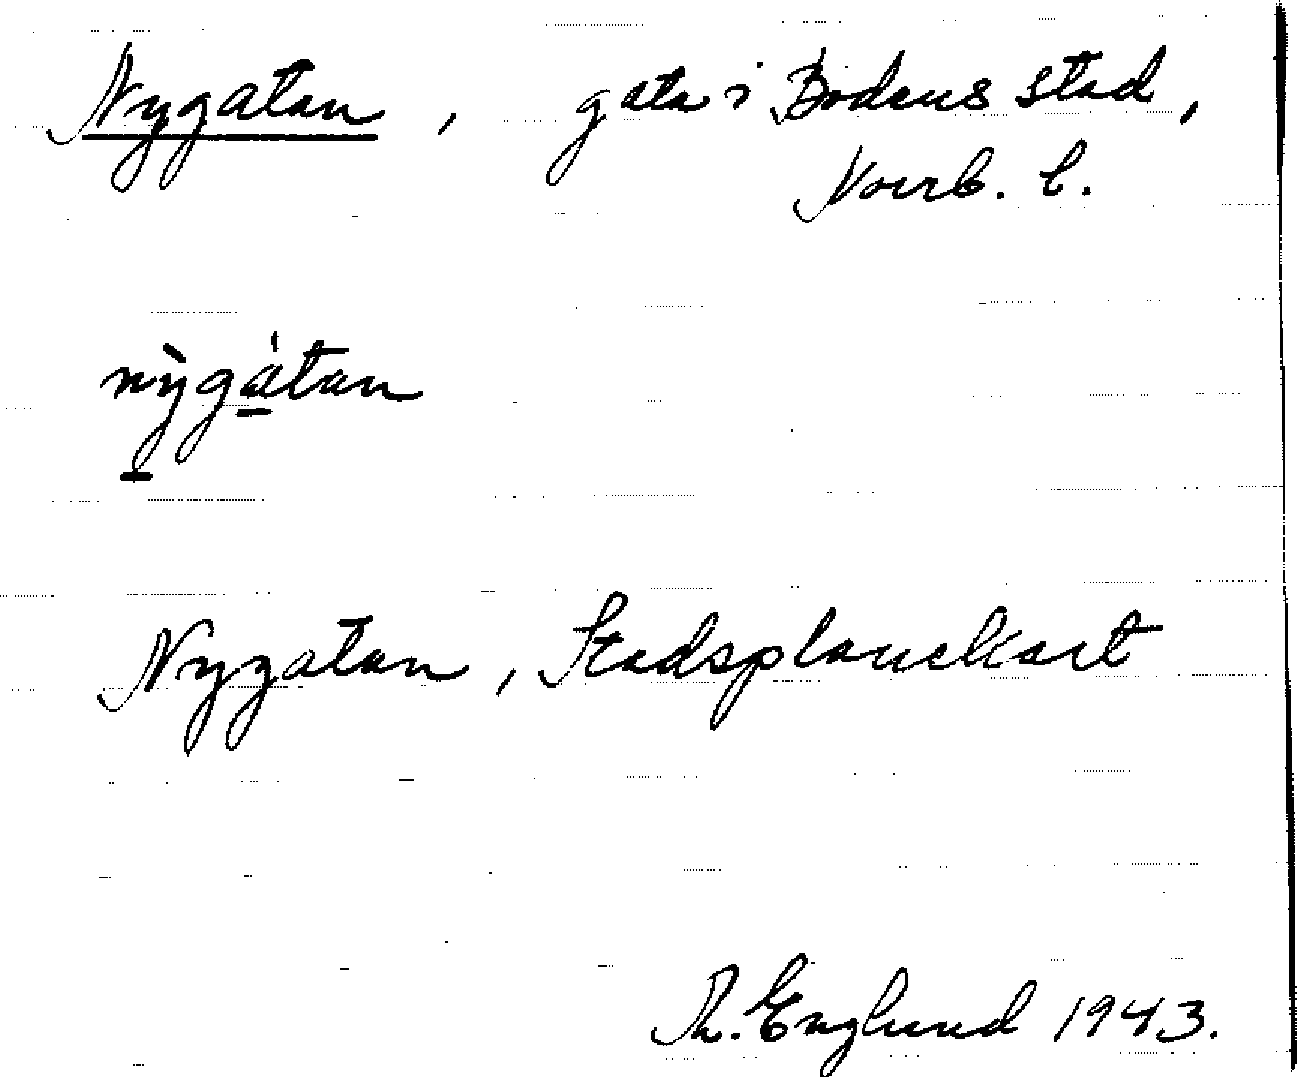 Nygatan, gata i Bodens stad,
Norrb. l.
nỳgátan
Nygatan, Stadsplanekart
R. Englund 1943.